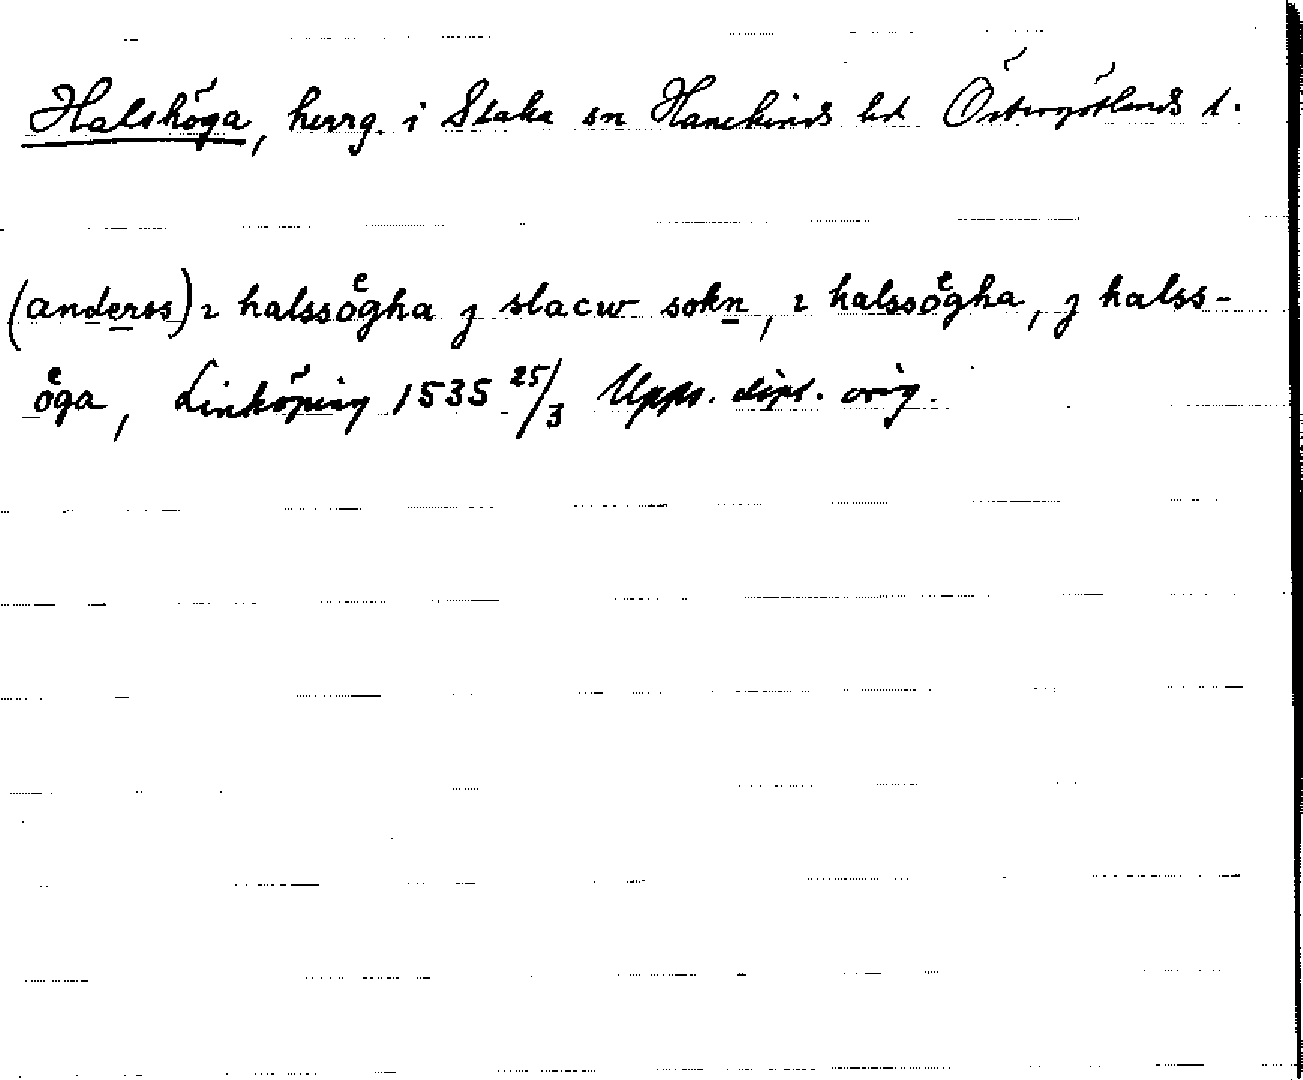 Halshöga, herrg. i Slaka sn Hanekinds hd Östergötlands l.
(anderss) ı halssoͤgha j slacw sokn, ı halssoͤgha, j halss-
oͤga, Linköping 1535 25/3 Upps. dipl. orig.